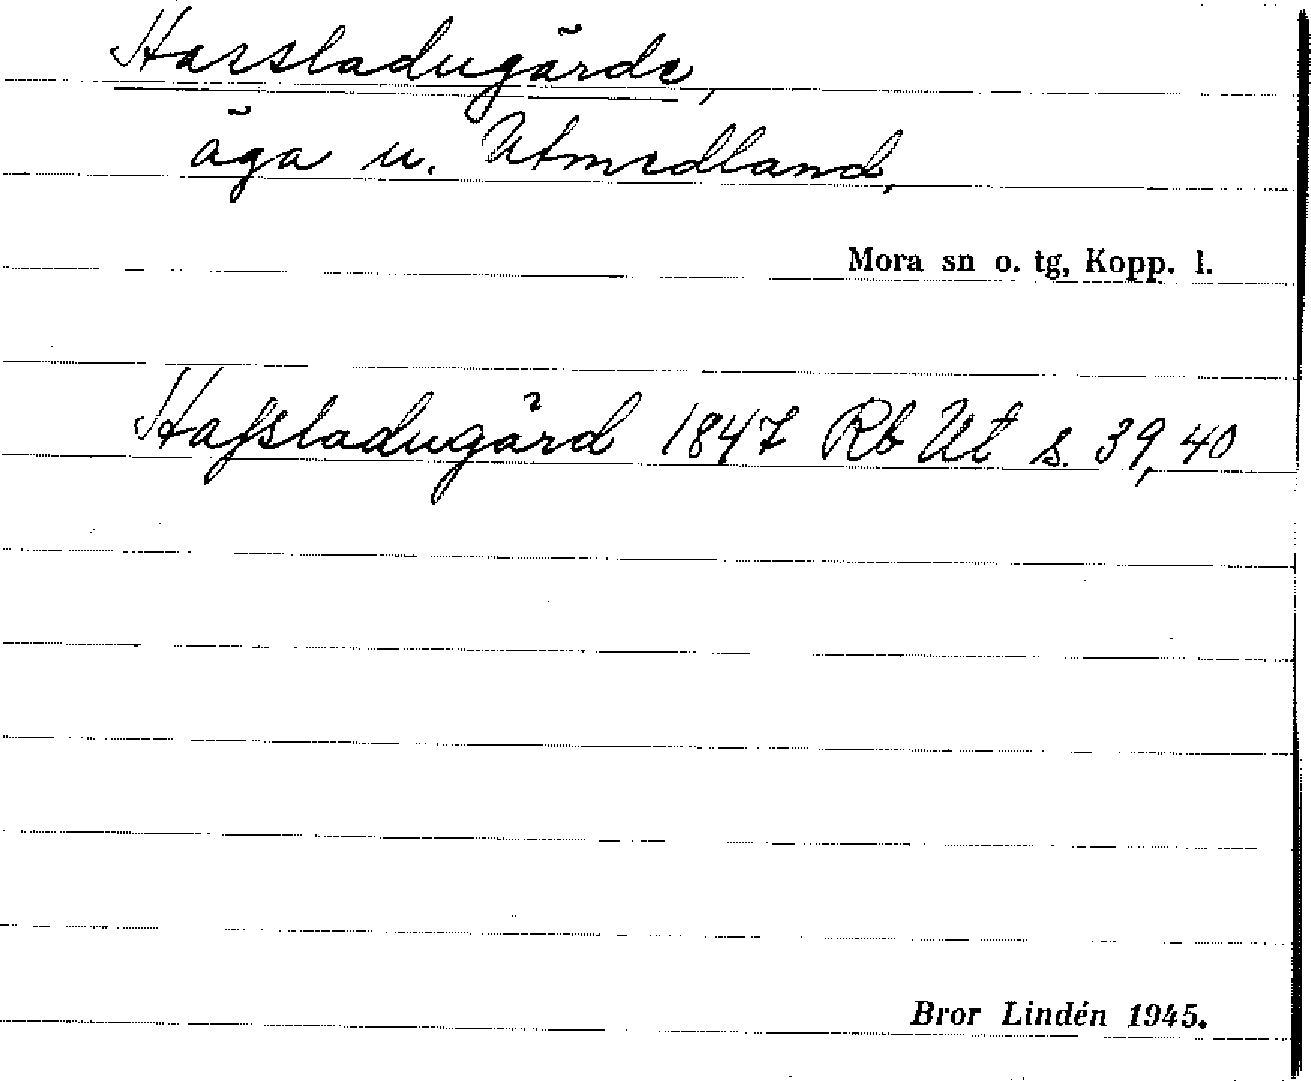 Harsladugärde,
äga u. Utmedland,
Mora sn o. tg, Kopp. l.
Hafsladugård 1847 Rb Ut s. 39, 40
Bror Lindén 1945.